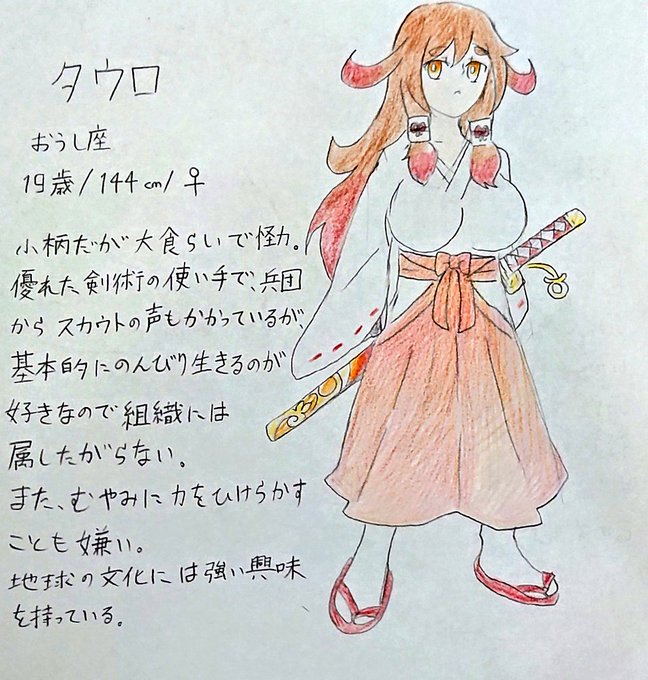 タウロ
おうし座
19歳/144cm/♀
小柄だが大食らいで怪力。
優れた剣術の使い手で、兵団
からスカウトの声もかかっているが、
基本的にのんびり生きるのが
好きなので組織には
属したがらない。
また、むやみに力をひけらかす
ことも嫌い。
地球の文化には強い興味
を持っている。